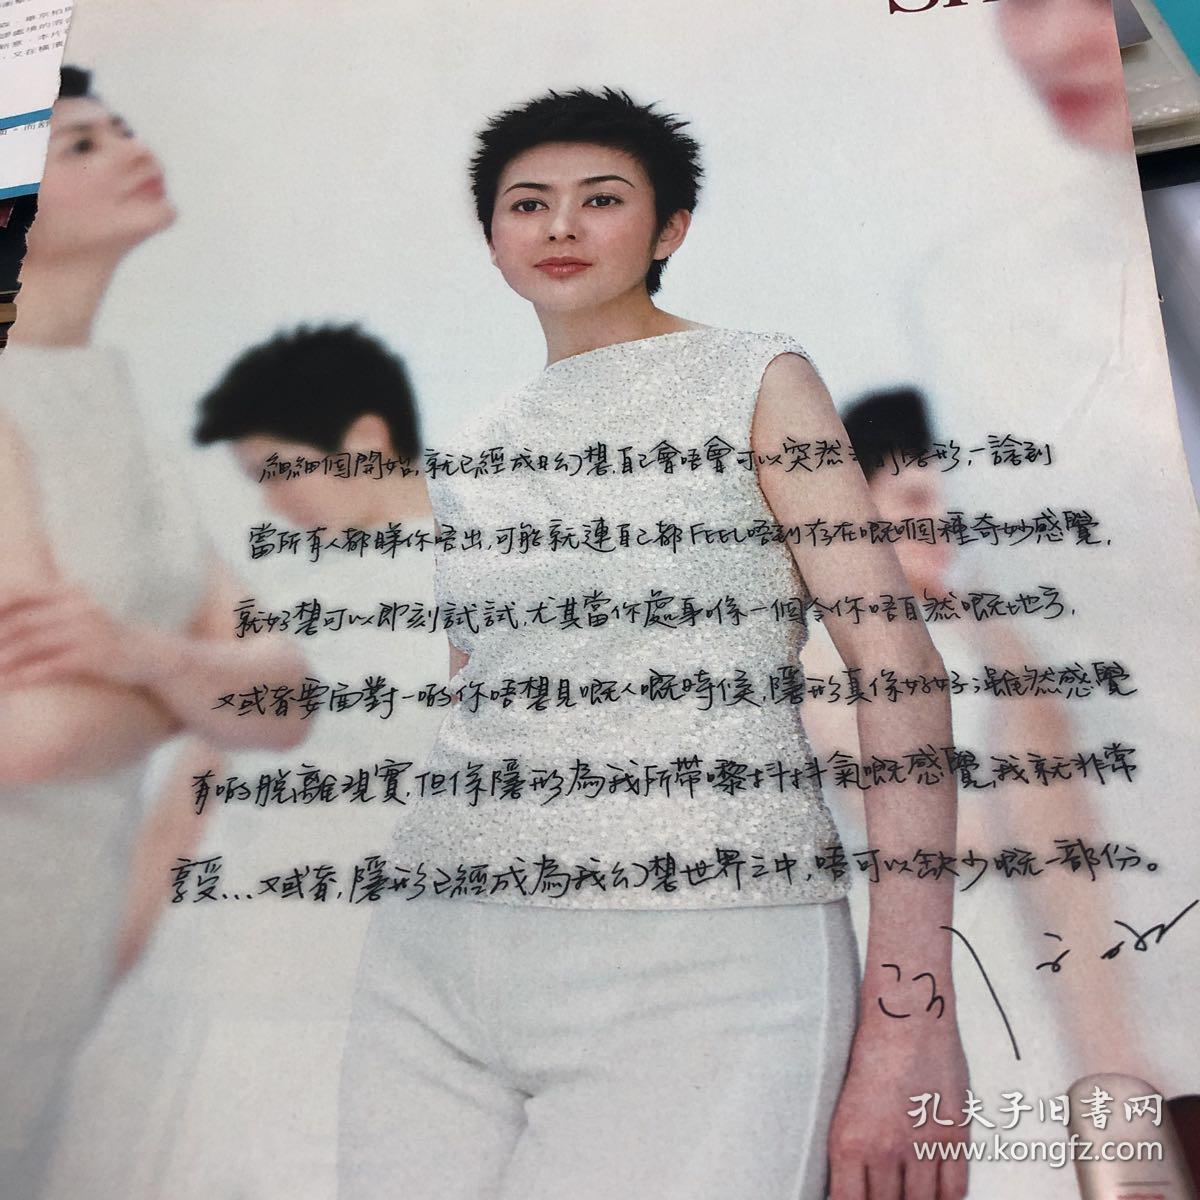 細細個開始,就已經成日幻想,自己會唔會可以突然 隱形,一諗到
當所有人都睇你唔出,可能就連自己都FEEL唔到存在嘅嗰個種奇妙感覺,
就好想可以即刻試試,尤其當你處身喺一個令你唔自然嘅地方,
又或者要面對一啲你唔想見嘅人嘅時候,隱形真係好好;雖然感覺
有啲脫離現實,但係隱形為我所帶嚟抖抖氣嘅感覺,我就非常
享受...又或者,隱形已經成為我幻想世界之中,唔可以缺少嘅一部份。
孔夫子旧书网
www.kongfz.com